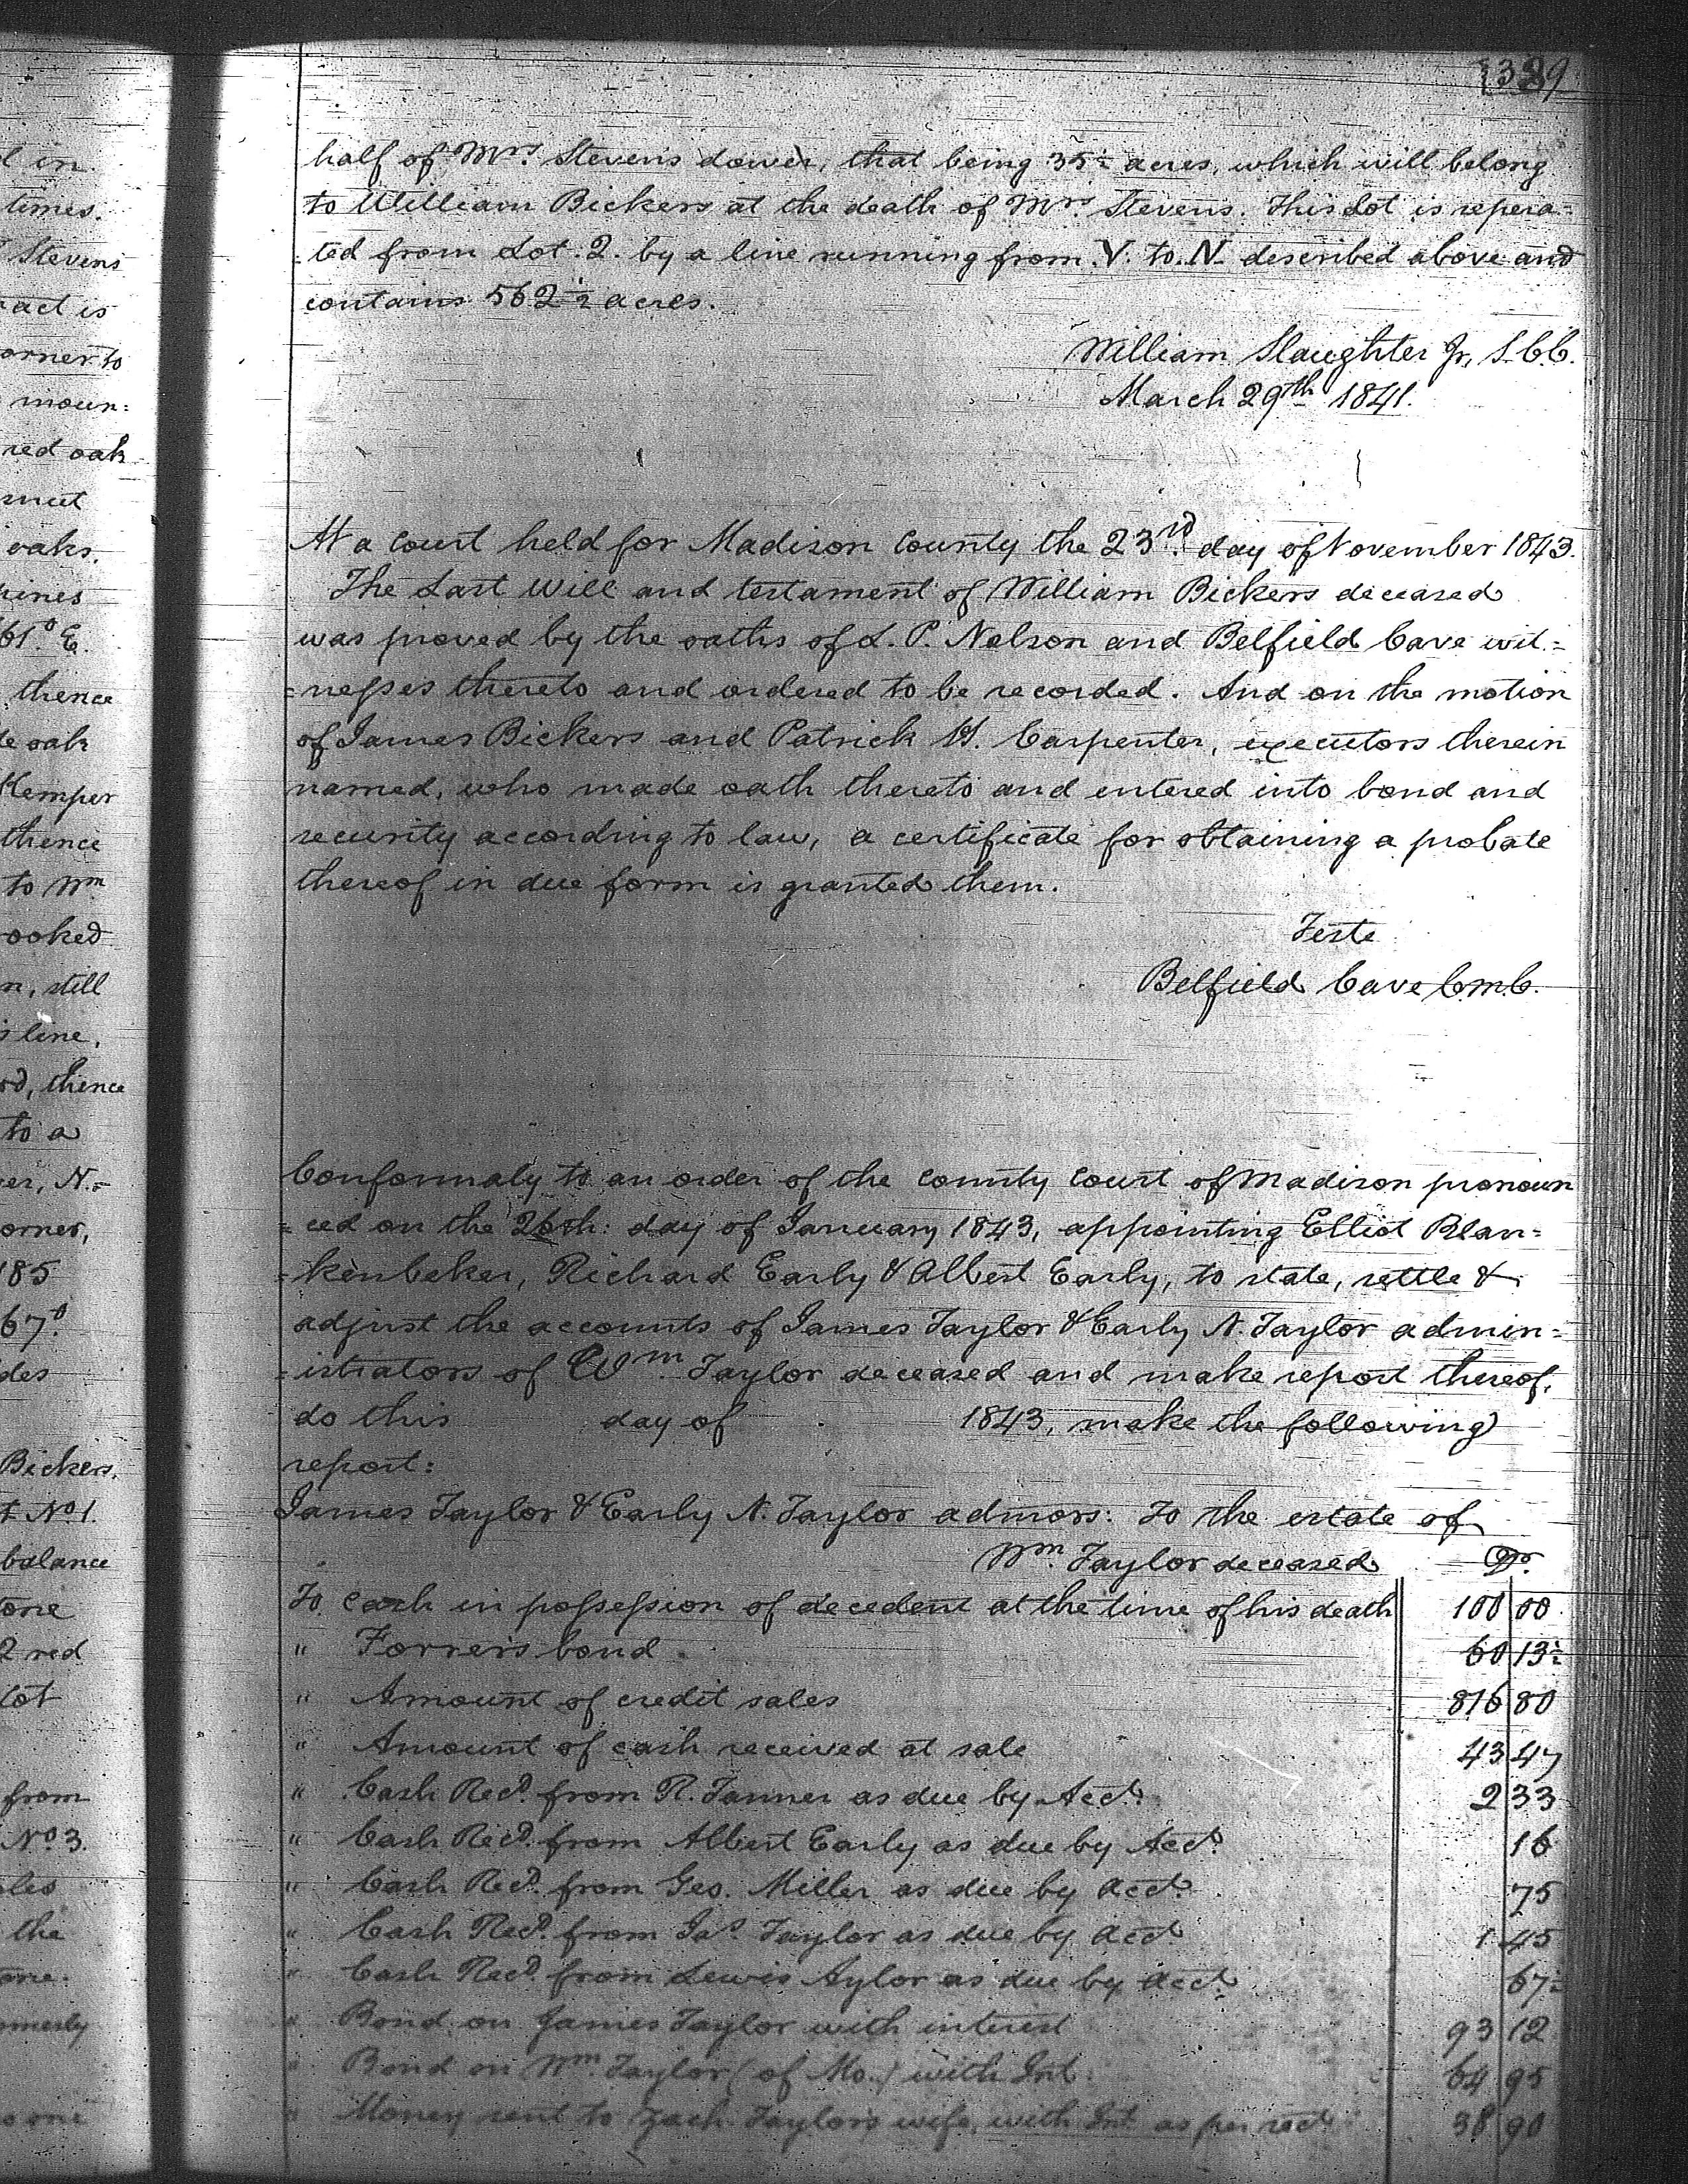 389
half of Mrs. Stevens dower, that being 35½ acres, which will belong
to William Bickers at the death of Mrs. Stevens. This Lot is sepera=
=ted from Lot. 2. by a line running from .V. to. N. described above and
contains 562½ acres.
William Slaughter Jr, S.C.C.
March 29th 1841.
At a Court held for Madison County the 23rd day of November 1843.
The Last Will and testament of William Bickers deceased
was proved by the oaths of L. P. Nelson and Belfield Cave wit=
=nesses thereto and ordered to be recorded. And on the motion
of James Bickers and Patrick H. Carpenter, executors therein
named, who made oath thereto and entered into bond and
security according to law, a certificate for obtaining a probate
thereof in due form is granted them.
Teste
Belfield Cave C.M.C.
Conformaly to an order of the County Court of Madison pronoun
=ced on the 26th: day of January 1843, appointing Elliot Blan=
=kenbeker, Richard Early & Albert Early, to state, settle &
adjust the accounts of James Taylor & Early N. Taylor admin=
=istrators of Wm Taylor deceased and make report thereof,
do this day of 1843, make the following
report:
James Taylor & Early N. Taylor admors: To the estate of
Wm Taylor deceased Dr.
To cash in possession of decedent at the time of his death 100 00
" Forrers bond 60 13½
" Amount of credit sales 816 80
" Amount of cash received at sale 43 47
" Cash Recd. from R. Tanner as due by Acct. 2 33
" Cash Recd. from Albert Early as due by Acct. 16
" Cash Recd. from Geo. Miller as due by acct. 75
" Cash Recd. from Jas Taylor as due by acct 1 45
" Cash Recd. from Lewis Aylor as due by acct. 67½
" Bond on James Taylor with interest 93 12
" Bond on Wm. Taylor (of Mo.) with Int. 64 95
" Money sent to Zach Taylors wife, with Int as per rect 38 90